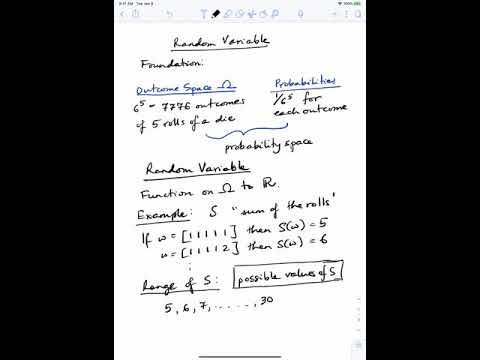 9:41 AM Tue Jan 9
Random Variable
Foundation:
Outcome Space Ω
Probabilities
6⁵ = 7776 outcomes
of 5 rolls of a die
1/6⁵ for
each outcome
probability space
Random Variable
Function on Ω to ℝ.
Example: S "sum of the rolls"
If ω = [1 1 1 1 1] then S(ω) = 5
ω = [1 1 1 1 2] then S(ω) = 6
⋮
Range of S: possible values of S
5, 6, 7, ......, 30